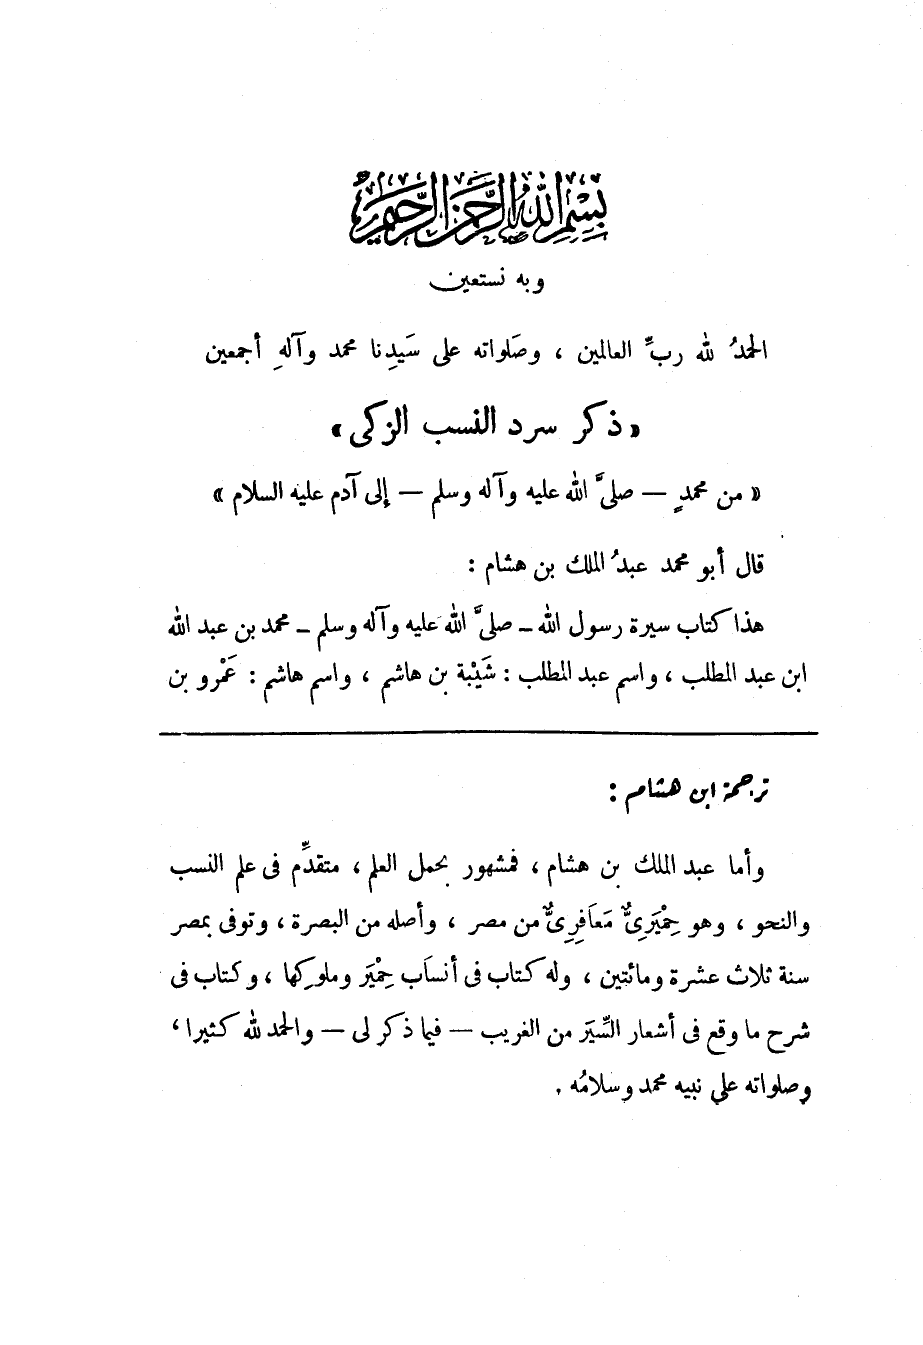 بسم الله الرحمن الرحيم
وبه نستعين
الحمدُ لله ربِّ العالمين ، وصَلواته على سَيدِنا محمد وآلهِ أجمعين
« ذكر سرد النسب الزكى »
« من محمدٍ — صلىَّ الله عليه وآله وسلم — إلى آدم عليه السلام »
قال أبو محمد عبدُ الملك بن هشام :
هذا كتاب سيرة رسول الله – صلىَّ الله عليه وآله وسلم – محمد بن عبد الله
ابن عبد المطلب ، واسم عبد المطلب : شَيْبة بن هاشم ، واسم هاشم : عَمْرو بن
ترجمة ابن هشام :
وأما عبد الملك بن هشام ، فمشهور بحمل العلم ، متقدِّم فى علم النسب
والنحو ، وهو حِمْيَرِىٌّ مَعَافِرِىٌّ من مصر ، وأصله من البصرة ، وتوفى بمصر
سنة ثلاث عشرة ومائتين ، وله كتاب فى أنسَاب حِمْيَر وملوكِها ، وكتاب فى
شرح ما وقع فى أشعار السِّيَر من الغريب — فيما ذكر لى — والحمد لله كثيرا ،
وصلواته على نبيه محمد وسلامُه .